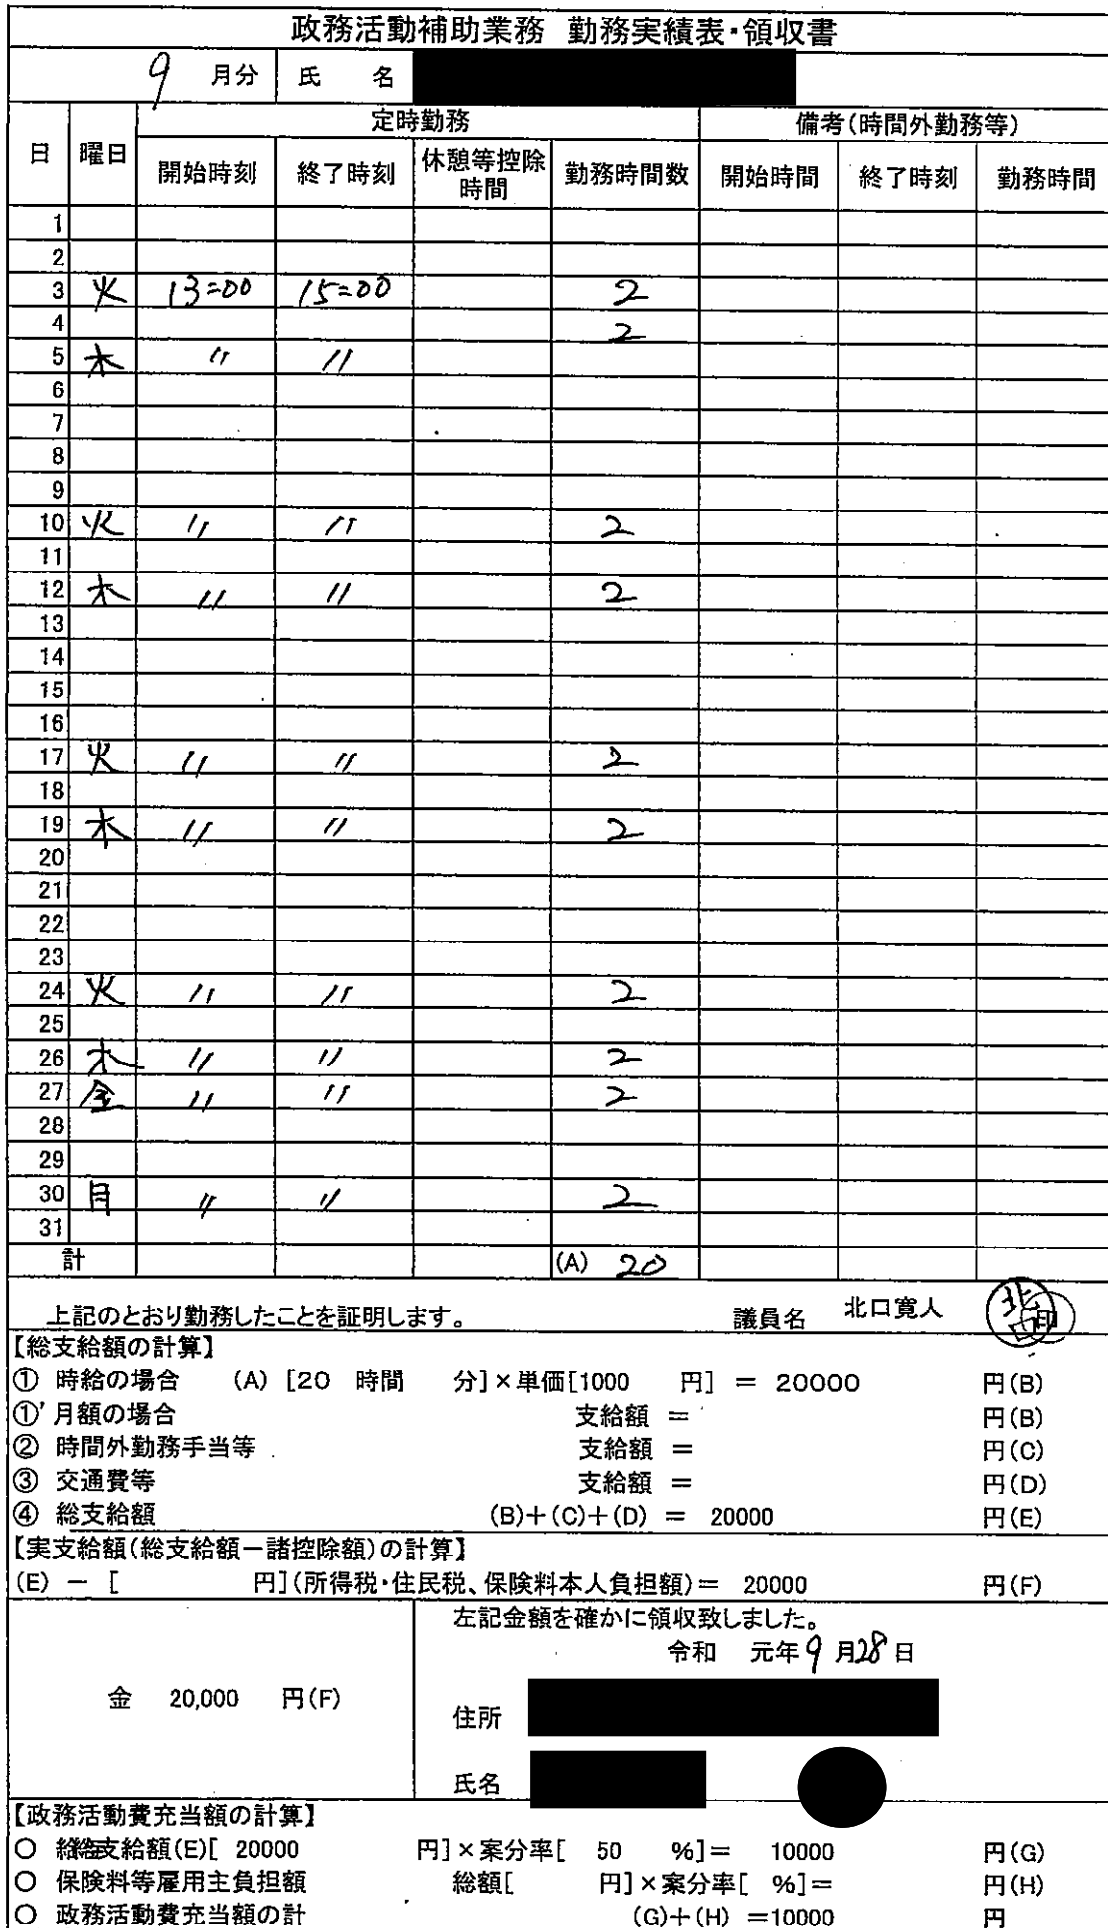 政務活動補助業務 勤務実績表・領収書
9 月分 氏 名
日 曜日 定時勤務 備考(時間外勤務等)
開始時刻 終了時刻 休憩等控除時間 勤務時間数 開始時間 終了時刻 勤務時間
1
2
3 火 13=00 15=00 2
4 2
5 木 〃 〃
6
7
8
9
10 火 〃 〃 2
11
12 木 〃 〃 2
13
14
15
16
17 火 〃 〃 2
18
19 木 〃 〃 2
20
21
22
23
24 火 〃 〃 2
25
26 木 〃 〃 2
27 金 〃 〃 2
28
29
30 月 〃 〃 2
31
計 (A) 20
上記のとおり勤務したことを証明します。 議員名 北口寛人 北口 印
【総支給額の計算】
① 時給の場合 (A) [20 時間 分]×単価[1000 円] = 20000 円(B)
①’月額の場合 支給額 = 円(B)
② 時間外勤務手当等 支給額 = 円(C)
③ 交通費等 支給額 = 円(D)
④ 総支給額 (B)+(C)+(D) = 20000 円(E)
【実支給額(総支給額-諸控除額)の計算】
(E) - [ 円](所得税・住民税、保険料本人負担額)= 20000 円(F)
左記金額を確かに領収致しました。
令和 元年 9 月 28 日
金 20,000 円(F)
住所
氏名
【政務活動費充当額の計算】
○ 総支給額(E)[ 20000 円]×案分率[ 50 %]= 10000 円(G)
○ 保険料等雇用主負担額 総額[ 円]×案分率[ %]= 円(H)
○ 政務活動費充当額の計 (G)+(H) =10000 円